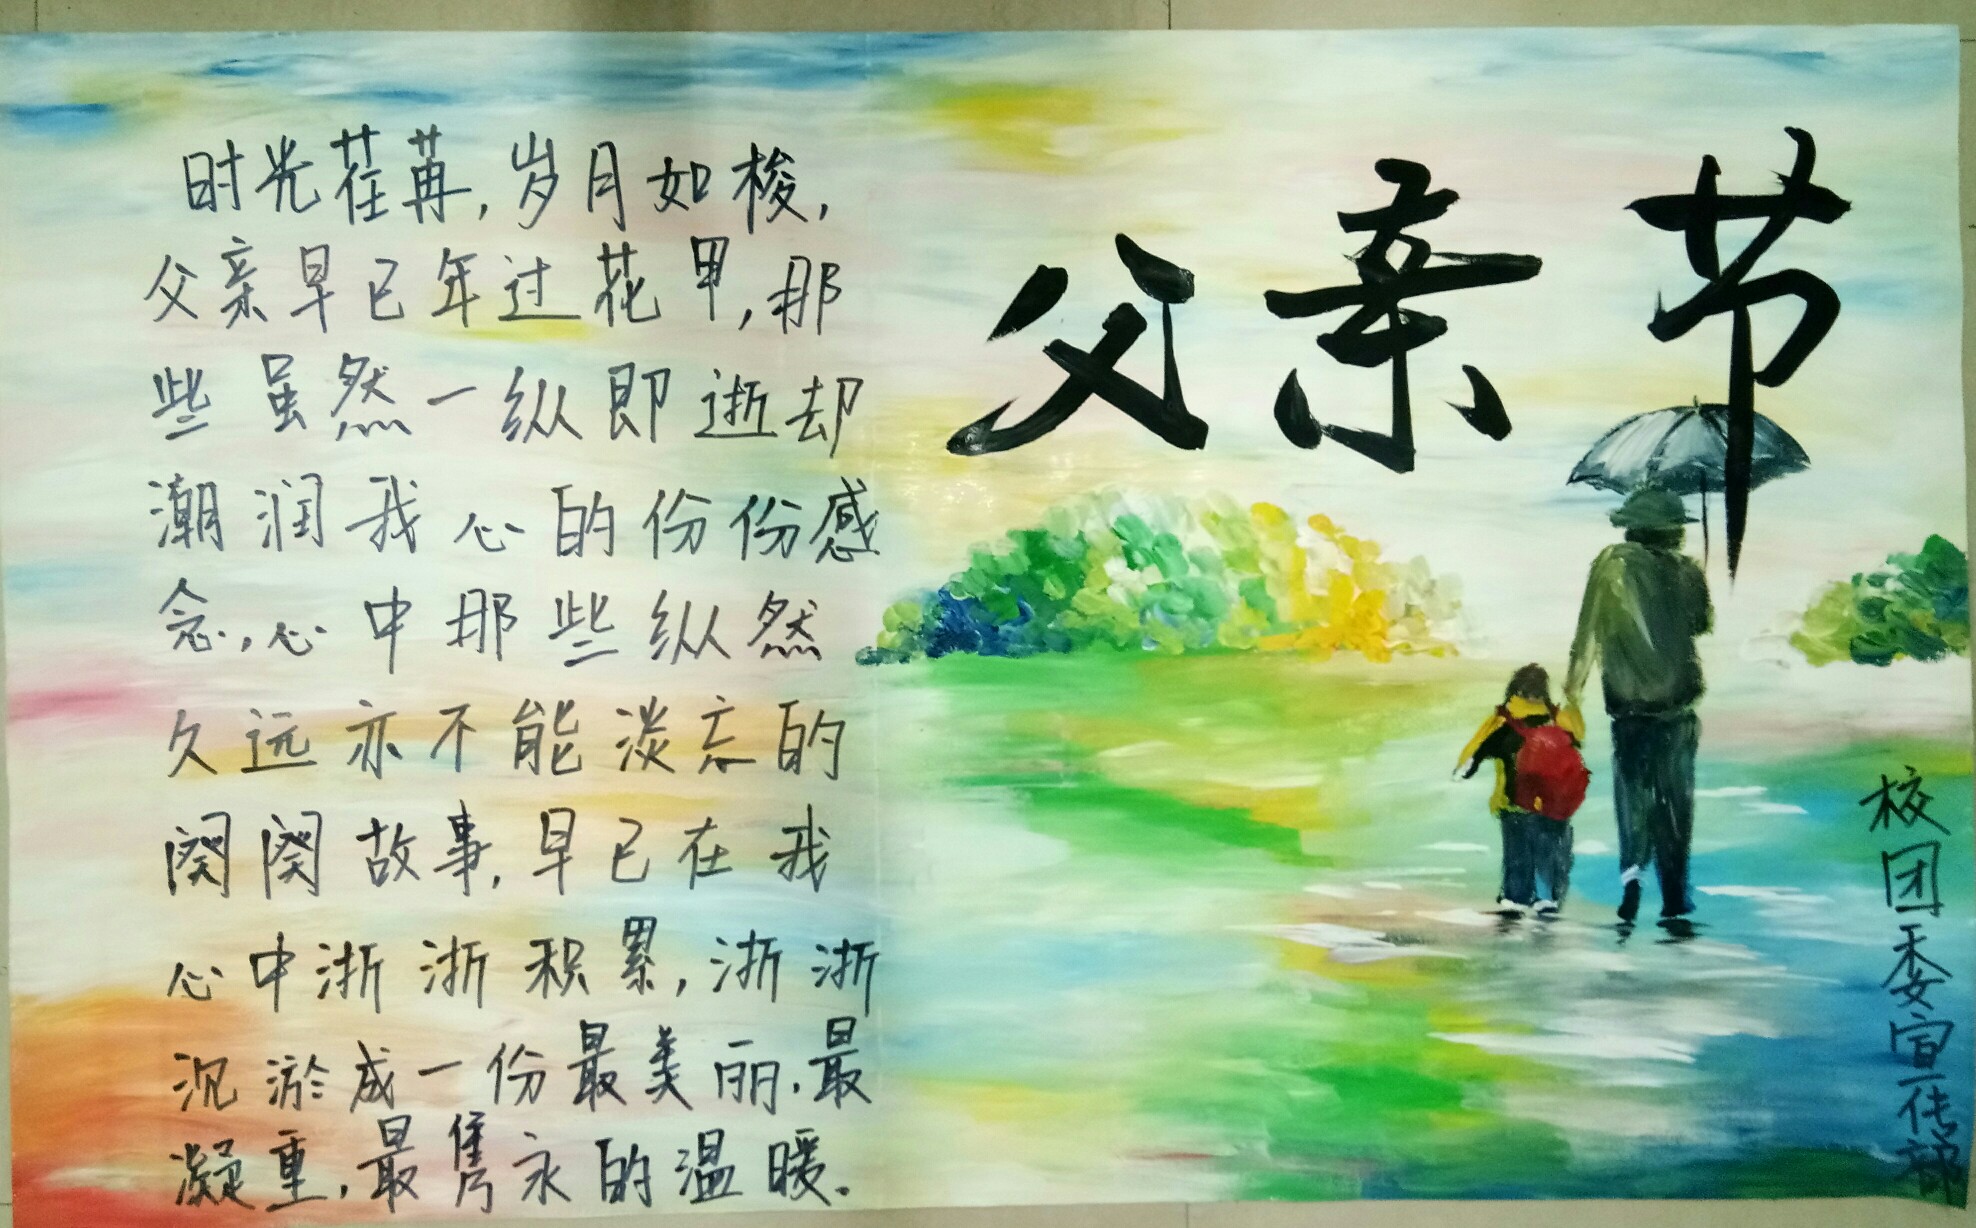 时光荏苒,岁月如梭,
父亲早已年过花甲,那
些虽然一纵即逝却
潮润我心的份份感
念,心中那些纵然
久远亦不能淡忘的
阕阕故事,早已在我
心中浙浙积累,浙浙
沉淤成一份最美丽.最
凝重,最隽永的温暖.
父亲节
校团委宣传部